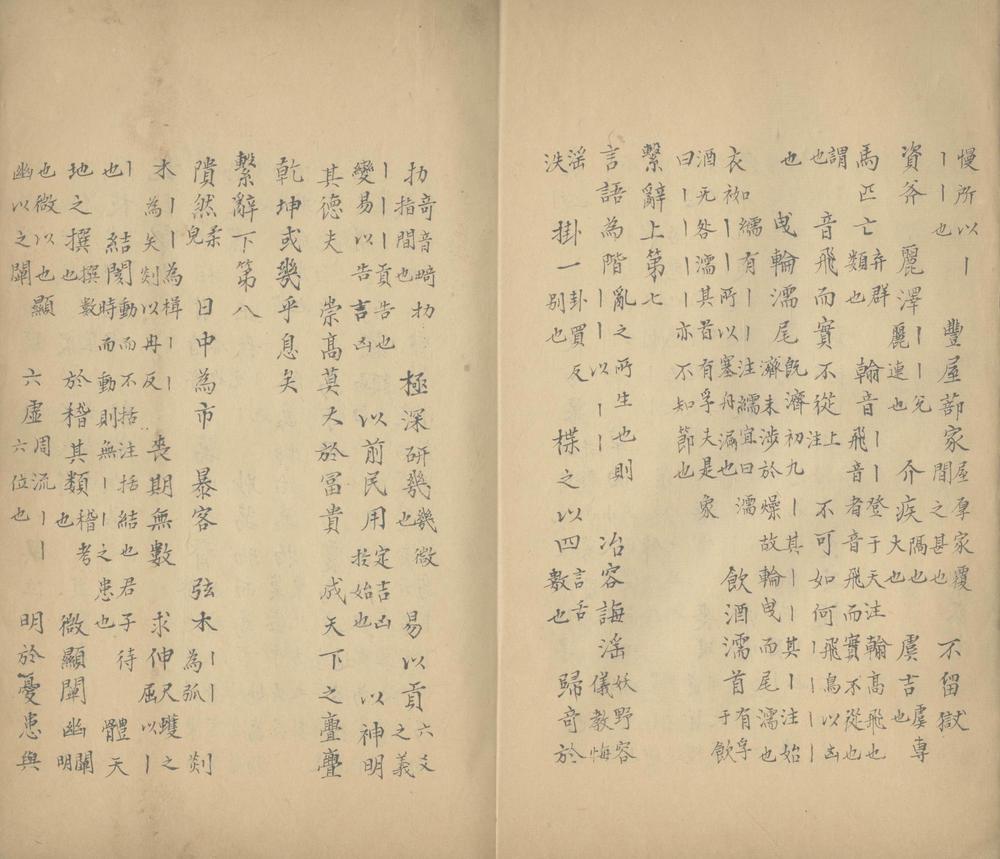 慢所以丨丨丨也 豐屋蔀家 屋厚家覆闇之甚也 不留獄
資斧 麗澤 丨丨兌麗連也 介疾 隔也大也 虞吉 虞專也
馬匹亡 弃群類也 翰音 丨登于天注翰高飛也飛音者音飛而實不從
謂也 音飛而實不從 上注 不可如何 丨飛鳥以凶丨丨丨丨
也 曳輪濡尾 既濟初九丨其丨其丨注始濟未涉於燥故輪曳而尾濡也
衣袽 繻有丨丨注繻宜曰濡丨丨所以塞舟漏也 飲酒濡首 有孚于飲
酒无咎濡其首有孚夫是曰丨丨丨丨亦不知節也 象
繫辭上第七
言語為階 亂之所生也則丨丨以丨丨 冶容誨淫 妖野容儀教悔
淫泆 掛一 卦買反別也 揲之以四 言舌數也 歸奇於
扐 奇音畸扐指間也 極深研幾 幾微也 易以貢 六爻之義
丨丨貢告也變易以告吉凶 以前民用 定吉凶於始也 以神明
其德夫 崇高莫大於富貴 成天下之亹亹
乾坤或幾乎息矣
繫辭下第八
隤然 柔皃 日中為市 暴客 弦木 為丨弧 剡
木 丨丨為楫丨丨為矢剡以冉反 喪期無數 求伸 尺蠖之屈以丨
丨也 結閡 動而不括注括結也君子待時而動則無丨丨之患也 體天
地之撰 撰數也 於稽其類 稽考也 微顯闡幽 闡明
也微以之顯幽以之闡也 六虛 周流丨丨六位也 明於憂患與